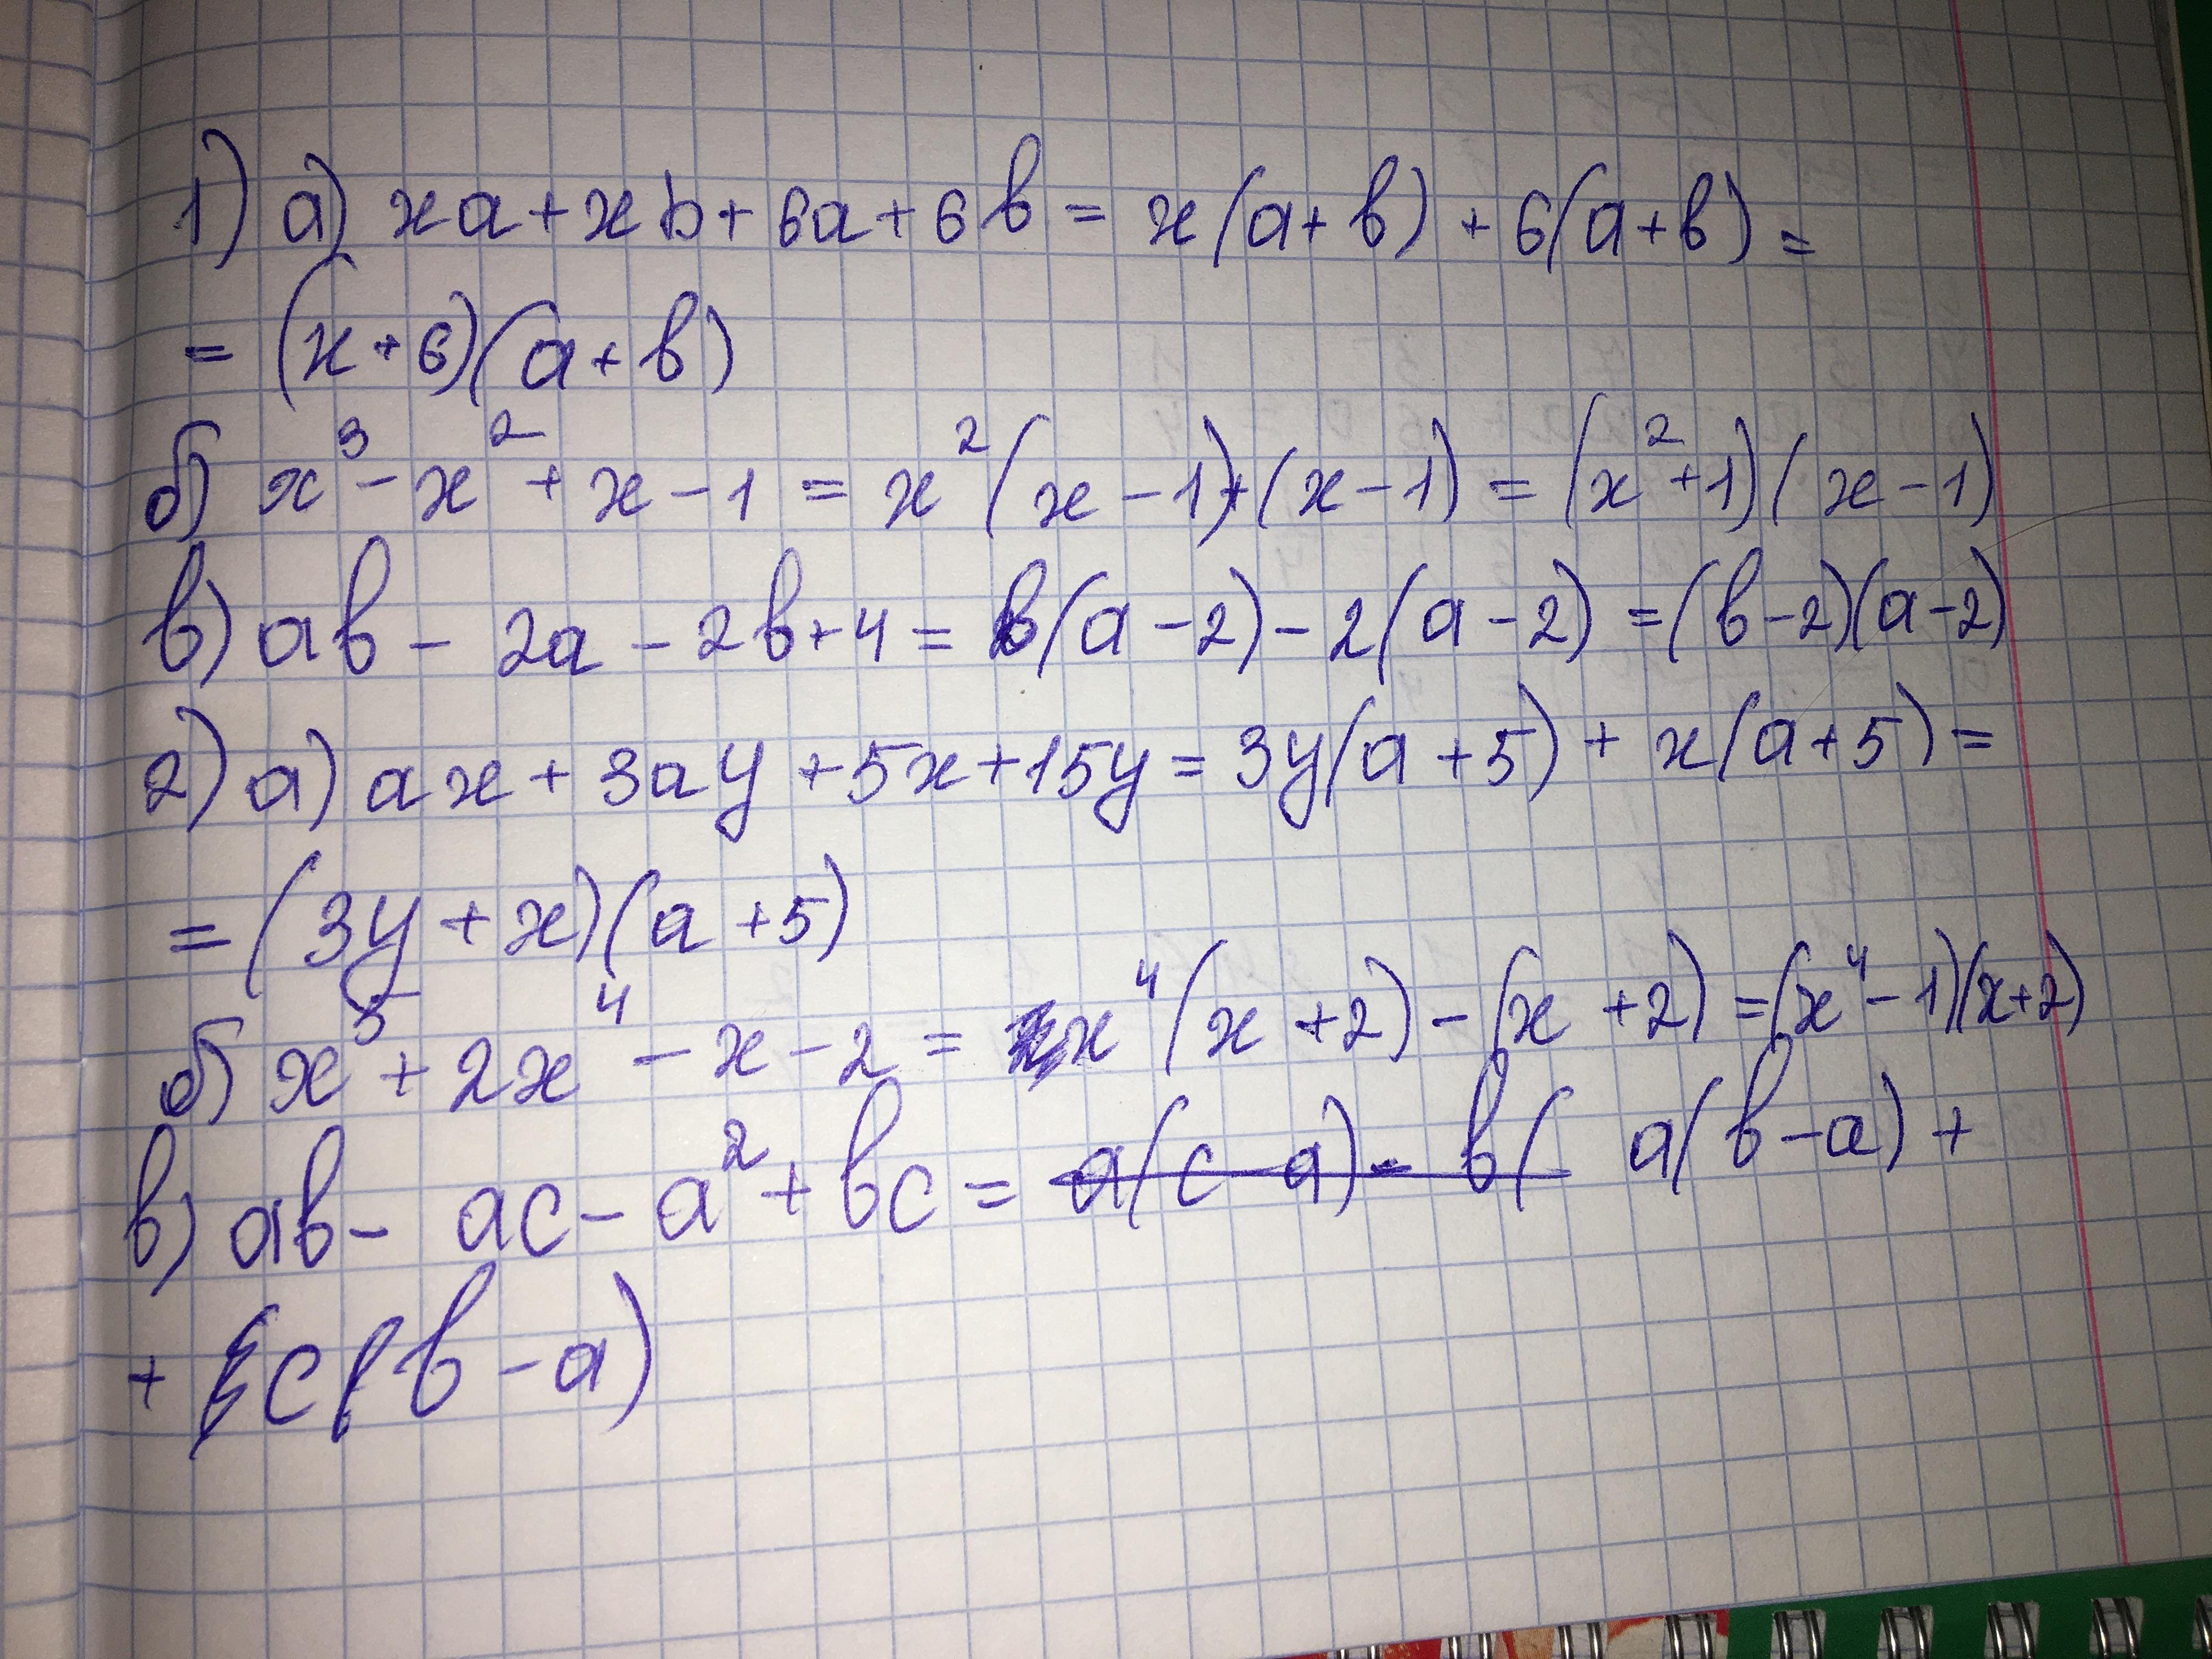 1) а) xa+xb+6a+6b = x(a+b) + 6(a+b) =
= (x+6)(a+b)
б) x³-x²+x-1 = x²(x-1)+(x-1) = (x²+1)(x-1)
в) ab - 2a - 2b+4 = b(a-2)-2(a-2) = (b-2)(a-2)
2) а) ax + 3ay +5x+15y = 3y(a+5) + x(a+5) =
= (3y+x)(a+5)
б) x⁵+2x⁴-x-2 = x⁴(x+2)-(x+2) = (x⁴-1)(x+2)
в) ab - ac - a²+bc = a(c-a)- b( a(b-a) +
+ c(b-a)